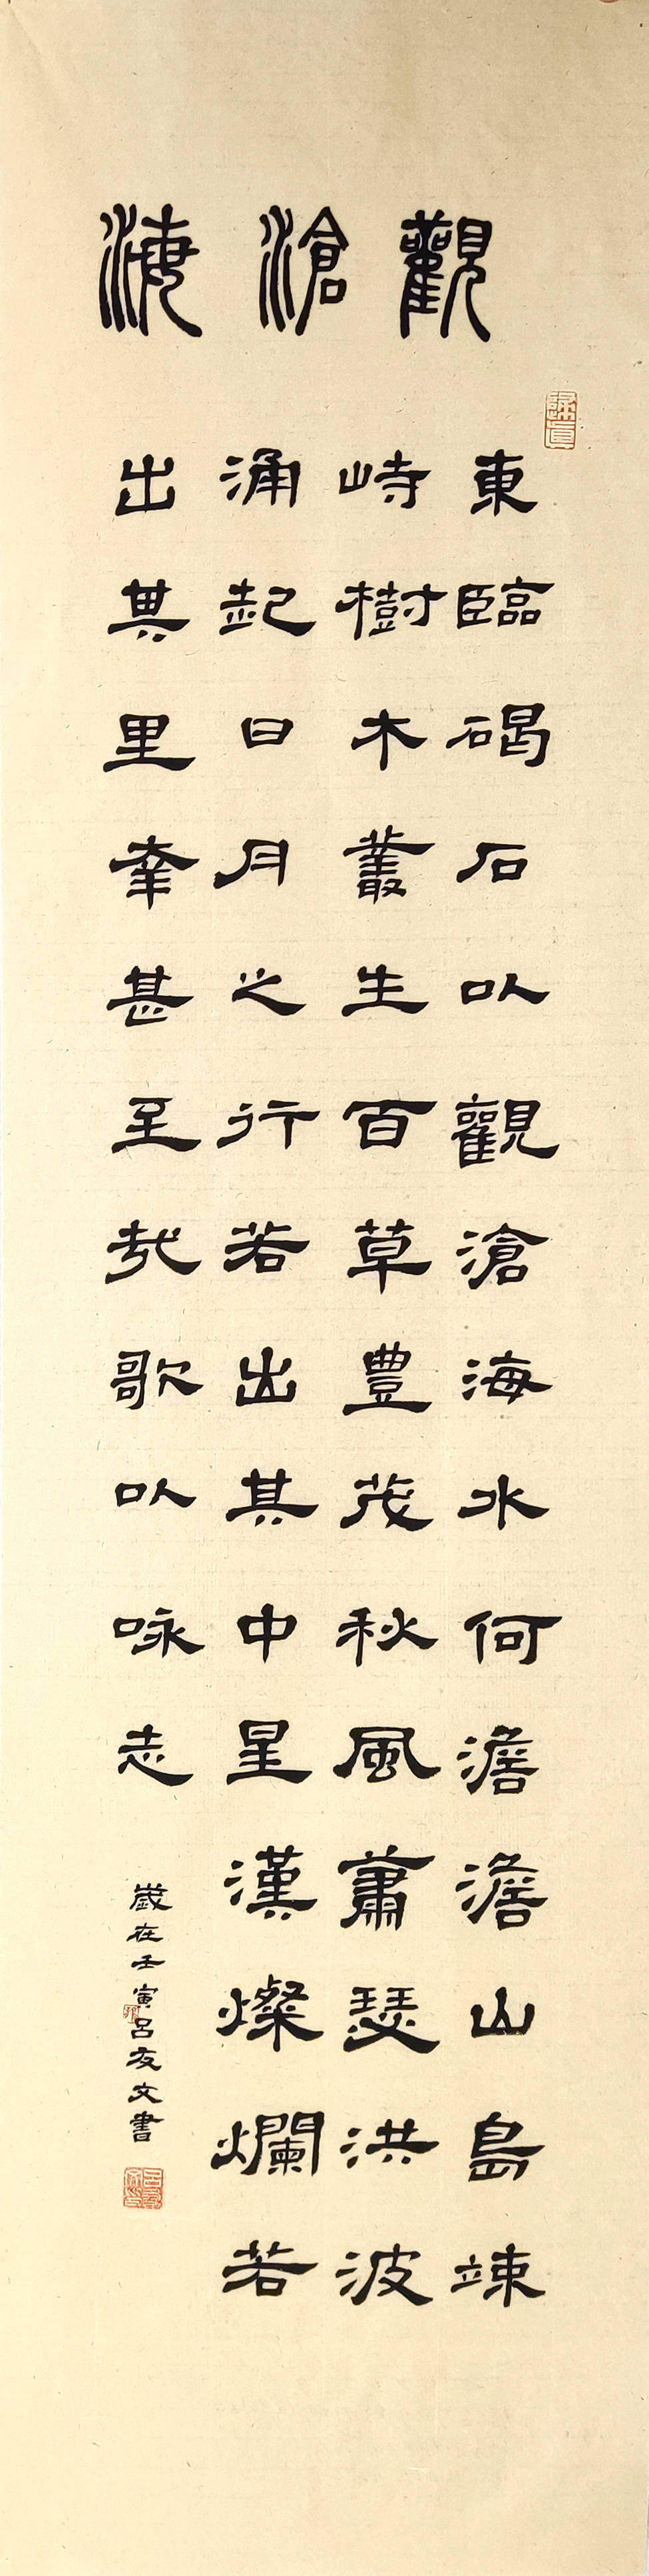 觀滄海
歸真
東臨碣石以觀滄海水何澹澹山島竦
峙樹木叢生百草豐茂秋風蕭瑟洪波
涌起日月之行若出其中星漢燦爛若
出其里幸甚至哉歌以咏志
歲在壬寅呂友文書